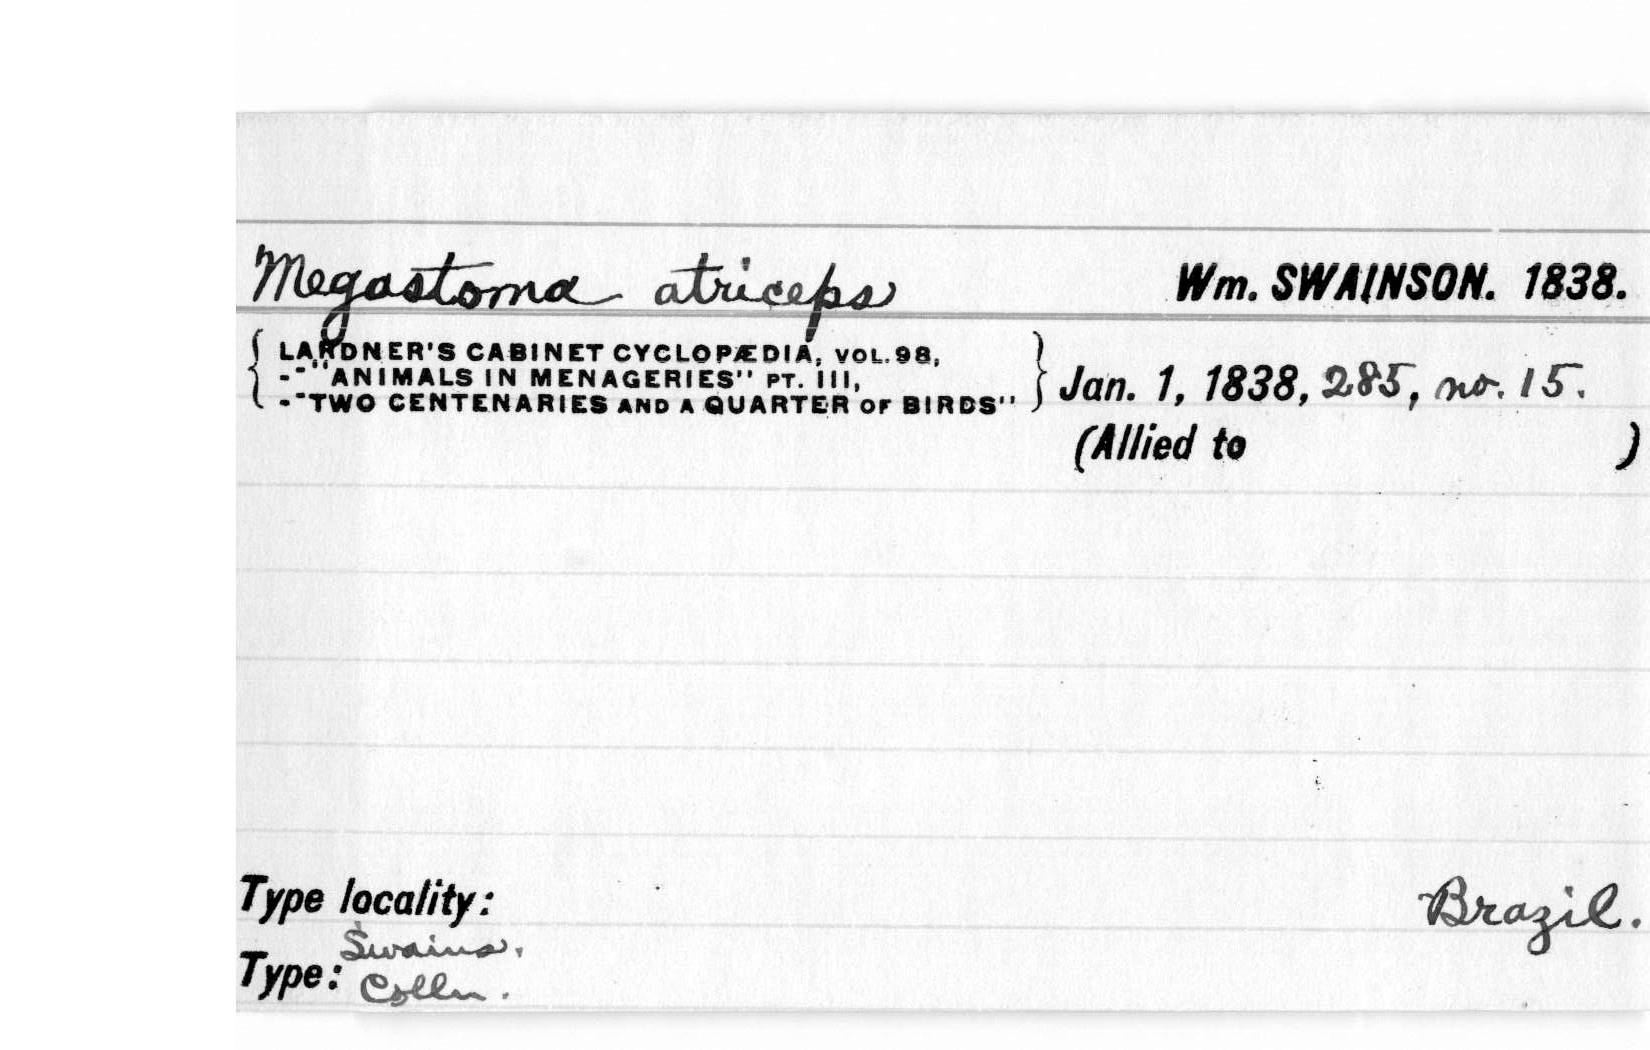 Megastoma atriceps Wm. SWAINSON. 1838.
LARDNER'S CABINET CYCLOPÆDIA, VOL. 98,
-"ANIMALS IN MENAGERIES" PT. III,
-"TWO CENTENARIES AND A QUARTER OF BIRDS"
Jan. 1, 1838, 285, no. 15.
(Allied to )
Type locality: Brazil.
Swains.
Type: Colln.